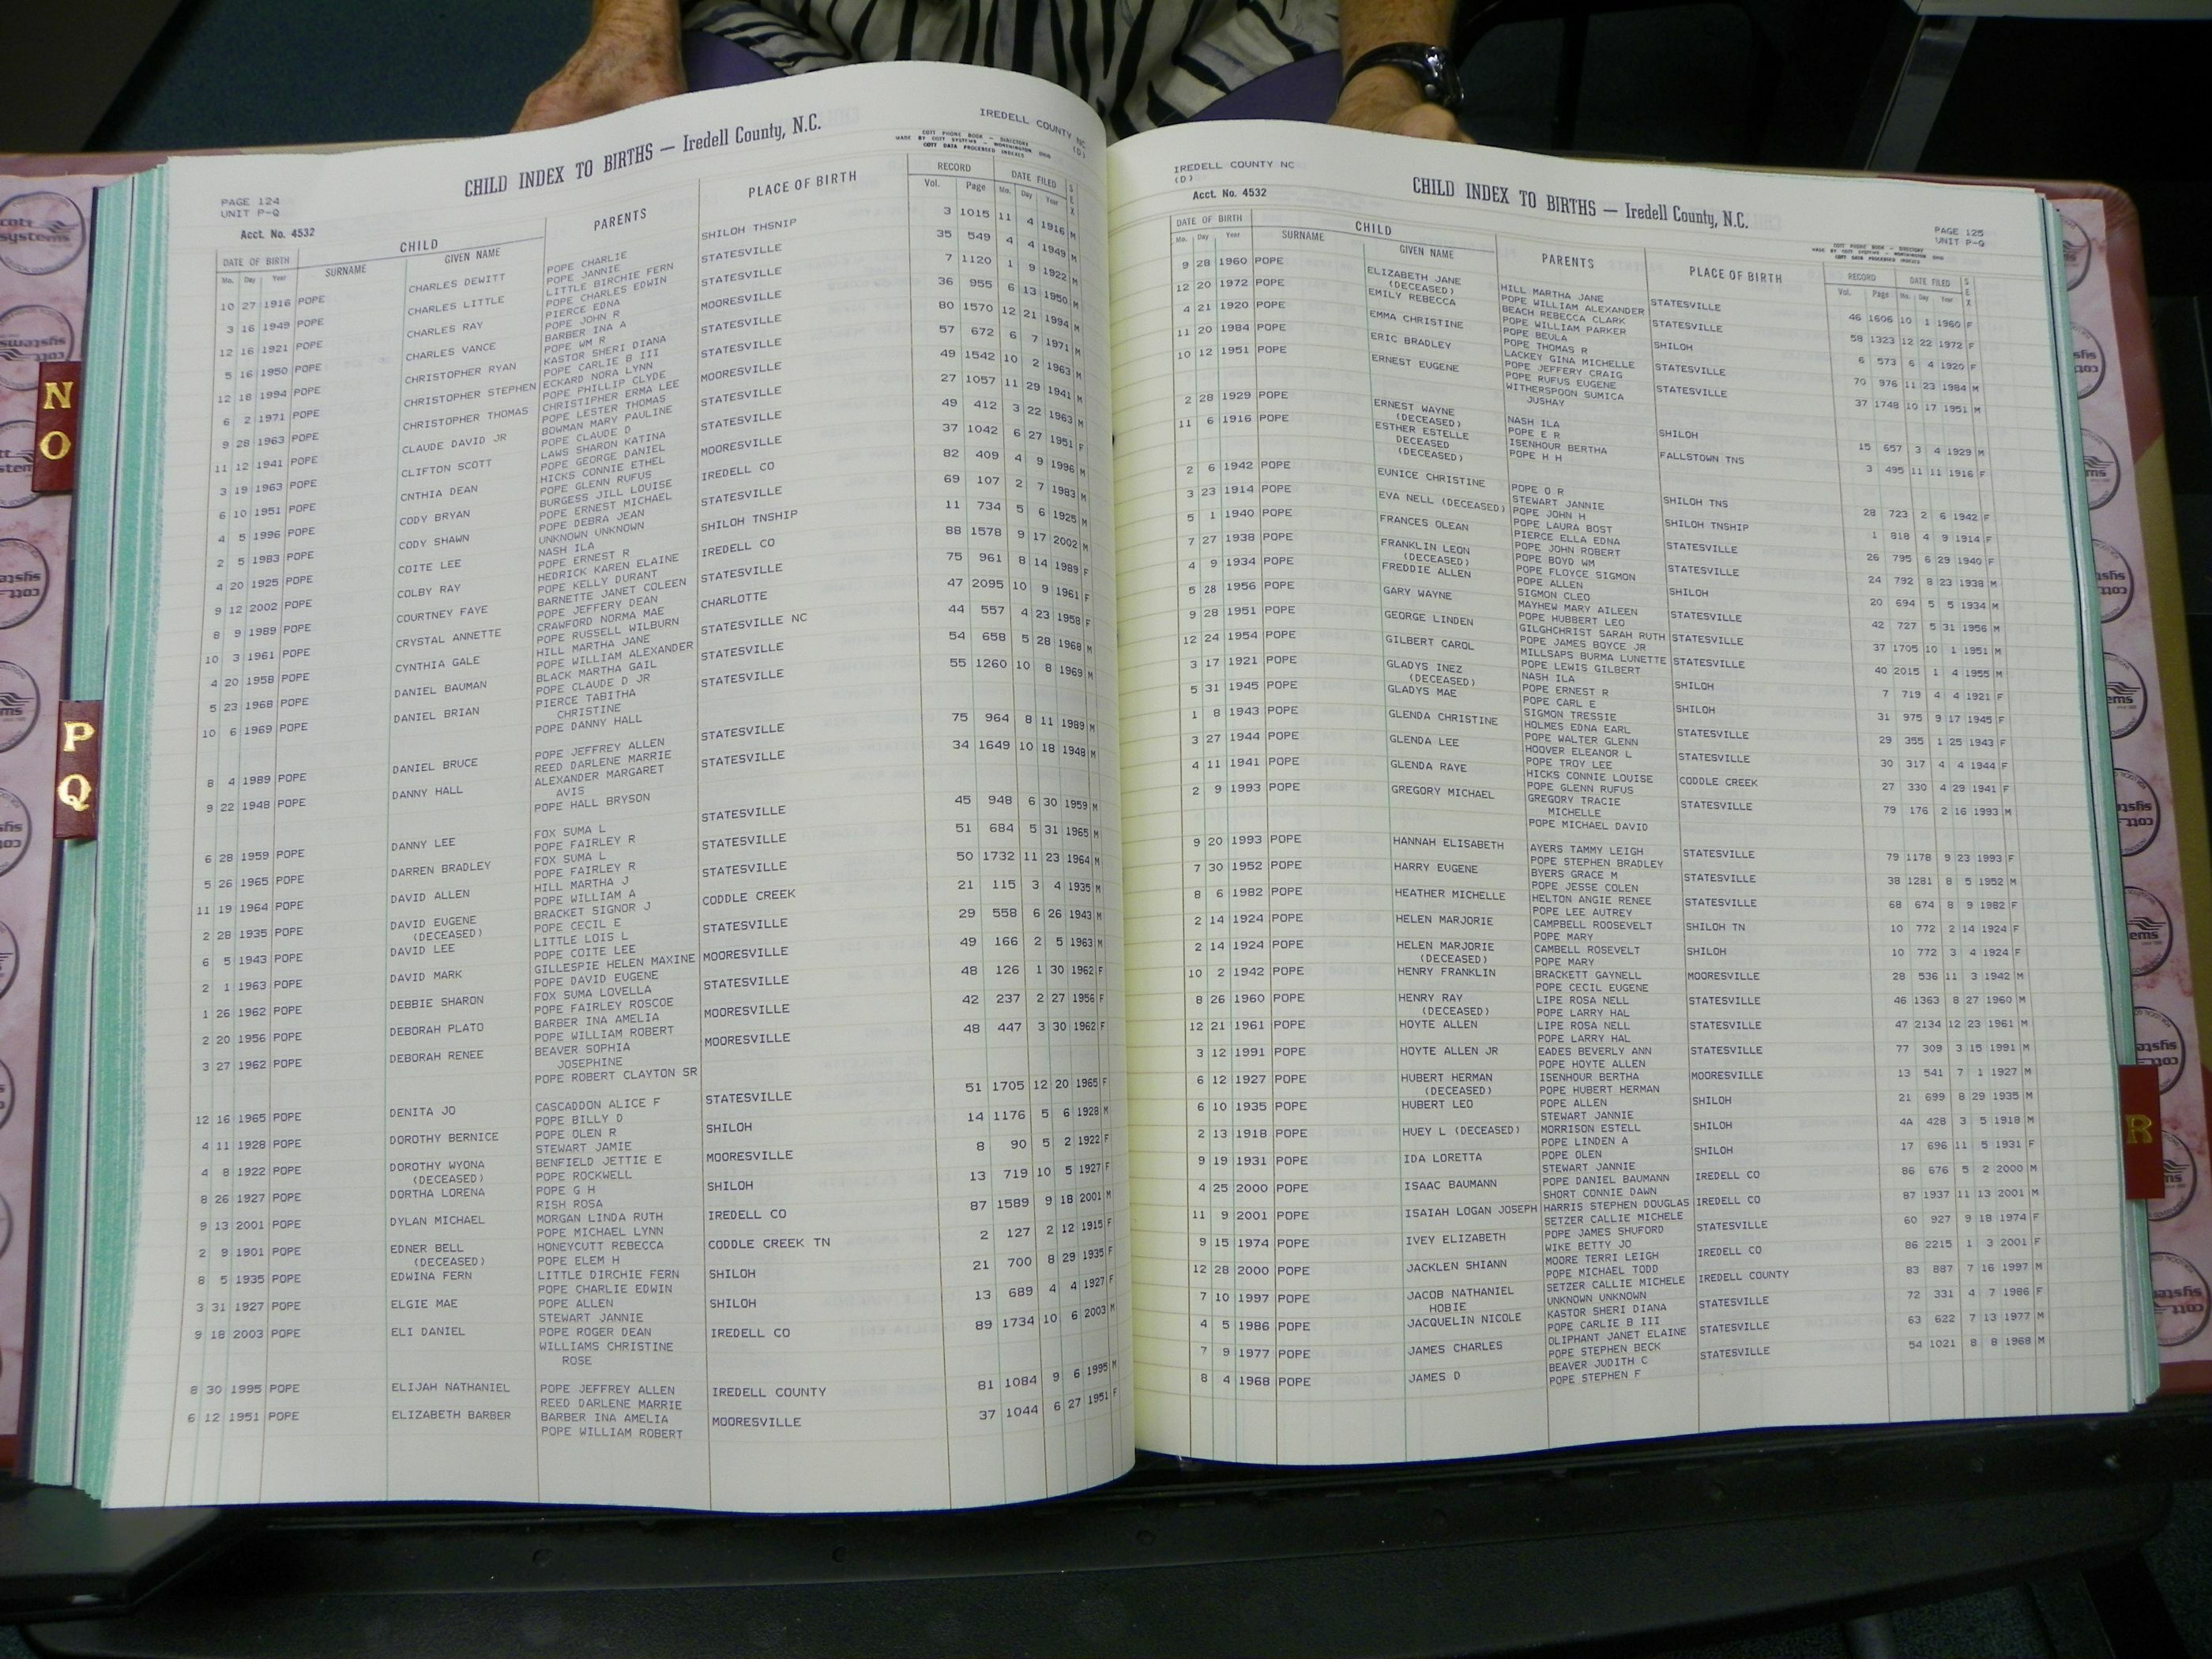 IREDELL COUNTY NC
(D)
COTT PHONE BOOK — DIRECTORY
MADE BY COTT SYSTEMS — WORTHINGTON, OHIO
COTT DATA PROCESSED INDEXES
CHILD INDEX TO BIRTHS — Iredell County, N.C.
PAGE 124
UNIT P-Q
Acct. No. 4532
DATE OF BIRTH CHILD PARENTS PLACE OF BIRTH RECORD DATE FILED SEX
Mo. Day Year SURNAME GIVEN NAME Vol. Page Mo. Day Year
10 27 1916 POPE CHARLES DEWITT POPE CHARLIE SHILOH THSNIP 3 1015 11 4 1916 M
POPE JANNIE
3 16 1949 POPE CHARLES LITTLE LITTLE BIRCHIE FERN STATESVILLE 35 549 4 4 1949 M
POPE CHARLES EDWIN
12 16 1921 POPE CHARLES RAY PIERCE EDNA STATESVILLE 7 1120 1 9 1922 M
POPE JOHN R
5 16 1950 POPE CHARLES VANCE BARBER INA A MOORESVILLE 36 955 6 13 1950 M
POPE WM R
12 18 1994 POPE CHRISTOPHER RYAN KASTOR SHERI DIANA STATESVILLE 80 1570 12 21 1994 M
POPE CARLIE B III
6 2 1971 POPE CHRISTOPHER STEPHEN ECKARD NORA LYNN STATESVILLE 57 672 6 7 1971 M
POPE PHILLIP CLYDE
9 28 1963 POPE CHRISTOPHER THOMAS CHRISTIPHER ERMA LEE MOORESVILLE 49 1542 10 2 1963 M
POPE LESTER THOMAS
11 12 1941 POPE CLAUDE DAVID JR BOWMAN MARY PAULINE STATESVILLE 27 1057 11 29 1941 M
POPE CLAUDE D
3 19 1963 POPE CLIFTON SCOTT LAWS SHARON KATINA STATESVILLE 49 412 3 22 1963 M
POPE GEORGE DANIEL
6 10 1951 POPE CNTHIA DEAN HICKS CONNIE ETHEL MOORESVILLE 37 1042 6 27 1951 F
POPE GLENN RUFUS
4 5 1996 POPE CODY BRYAN BURGESS JILL LOUISE IREDELL CO 82 409 4 9 1996 M
POPE ERNEST MICHAEL
2 5 1983 POPE CODY SHAWN POPE DEBRA JEAN STATESVILLE 69 107 2 7 1983 M
UNKNOWN UNKNOWN
4 20 1925 POPE COITE LEE NASH ILA SHILOH TNSHIP 11 734 5 6 1925 M
POPE ERNEST R
9 12 2002 POPE COLBY RAY HEDRICK KAREN ELAINE IREDELL CO 88 1578 9 17 2002 M
POPE KELLY DURANT
8 9 1989 POPE COURTNEY FAYE BARNETTE JANET COLEEN STATESVILLE 75 961 8 14 1989 F
POPE JEFFERY DEAN
10 3 1961 POPE CRYSTAL ANNETTE CRAWFORD NORMA MAE CHARLOTTE 47 2095 10 9 1961 F
POPE RUSSELL WILBURN
4 20 1958 POPE CYNTHIA GALE HILL MARTHA JANE STATESVILLE NC 44 557 4 23 1958 F
POPE WILLIAM ALEXANDER
5 23 1968 POPE DANIEL BAUMAN BLACK MARTHA GAIL STATESVILLE 54 658 5 28 1968 M
POPE CLAUDE D JR
10 6 1969 POPE DANIEL BRIAN PIERCE TABITHA STATESVILLE 55 1260 10 8 1969 M
CHRISTINE
POPE DANNY HALL
8 4 1989 POPE DANIEL BRUCE POPE JEFFREY ALLEN STATESVILLE 75 964 8 11 1989 M
REED DARLENE MARRIE
9 22 1948 POPE DANNY HALL ALEXANDER MARGARET STATESVILLE 34 1649 10 18 1948 M
AVIS
POPE HALL BRYSON
6 28 1959 POPE DANNY LEE FOX SUMA L STATESVILLE 45 948 6 30 1959 M
POPE FAIRLEY R
5 26 1965 POPE DARREN BRADLEY FOX SUMA L STATESVILLE 51 684 5 31 1965 M
POPE FAIRLEY R
11 19 1964 POPE DAVID ALLEN HILL MARTHA J STATESVILLE 50 1732 11 23 1964 M
POPE WILLIAM A
2 28 1935 POPE DAVID EUGENE BRACKET SIGNOR J CODDLE CREEK 21 115 3 4 1935 M
(DECEASED) POPE CECIL E
6 5 1943 POPE DAVID LEE LITTLE LOIS L STATESVILLE 29 558 6 26 1943 M
POPE COITE LEE
2 1 1963 POPE DAVID MARK GILLESPIE HELEN MAXINE MOORESVILLE 49 166 2 5 1963 M
POPE DAVID EUGENE
1 26 1962 POPE DEBBIE SHARON FOX SUMA LOVELLA STATESVILLE 48 126 1 30 1962 F
POPE FAIRLEY ROSCOE
2 20 1956 POPE DEBORAH PLATO BARBER INA AMELIA MOORESVILLE 42 237 2 27 1956 F
POPE WILLIAM ROBERT
3 27 1962 POPE DEBORAH RENEE BEAVER SOPHIA MOORESVILLE 48 447 3 30 1962 F
JOSEPHINE
POPE ROBERT CLAYTON SR
12 16 1965 POPE DENITA JO CASCADDON ALICE F STATESVILLE 51 1705 12 20 1965 F
POPE BILLY D
4 11 1928 POPE DOROTHY BERNICE POPE OLEN R SHILOH 14 1176 5 6 1928 M
STEWART JAMIE
4 8 1922 POPE DOROTHY WYONA BENFIELD JETTIE E MOORESVILLE 8 90 5 2 1922 F
(DECEASED) POPE ROCKWELL
8 26 1927 POPE DORTHA LORENA POPE G H SHILOH 13 719 10 5 1927 F
RISH ROSA
9 13 2001 POPE DYLAN MICHAEL MORGAN LINDA RUTH IREDELL CO 87 1589 9 18 2001 M
POPE MICHAEL LYNN
2 9 1901 POPE EDNER BELL HONEYCUTT REBECCA CODDLE CREEK TN 2 127 2 12 1915 F
(DECEASED) POPE ELEM H
8 5 1935 POPE EDWINA FERN LITTLE DIRCHIE FERN SHILOH 21 700 8 29 1935 F
POPE CHARLIE EDWIN
3 31 1927 POPE ELGIE MAE POPE ALLEN SHILOH 13 689 4 4 1927 F
STEWART JANNIE
9 18 2003 POPE ELI DANIEL POPE ROGER DEAN IREDELL CO 89 1734 10 6 2003 M
WILLIAMS CHRISTINE
ROSE
8 30 1995 POPE ELIJAH NATHANIEL POPE JEFFREY ALLEN IREDELL COUNTY 81 1084 9 6 1995 M
REED DARLENE MARRIE
6 12 1951 POPE ELIZABETH BARBER BARBER INA AMELIA MOORESVILLE 37 1044 6 27 1951 F
POPE WILLIAM ROBERT
IREDELL COUNTY NC
(D)
Acct. No. 4532
CHILD INDEX TO BIRTHS — Iredell County, N.C.
PAGE 125
UNIT P-Q
COTT PHONE BOOK — DIRECTORY
MADE BY COTT SYSTEMS — WORTHINGTON, OHIO
COTT DATA PROCESSED INDEXES
DATE OF BIRTH CHILD PARENTS PLACE OF BIRTH RECORD DATE FILED SEX
Mo. Day Year SURNAME GIVEN NAME Vol. Page Mo. Day Year
9 28 1960 POPE ELIZABETH JANE HILL MARTHA JANE STATESVILLE 46 1606 10 1 1960 F
(DECEASED) POPE WILLIAM ALEXANDER
12 20 1972 POPE EMILY REBECCA BEACH REBECCA CLARK STATESVILLE 58 1323 12 22 1972 F
POPE WILLIAM PARKER
4 21 1920 POPE EMMA CHRISTINE POPE BEULA SHILOH 6 573 6 4 1920 F
POPE THOMAS R
11 20 1984 POPE ERIC BRADLEY LACKEY GINA MICHELLE STATESVILLE 70 976 11 23 1984 M
POPE JEFFERY CRAIG
10 12 1951 POPE ERNEST EUGENE POPE RUFUS EUGENE STATESVILLE 37 1748 10 17 1951 M
WITHERSPOON SUMICA
JUSHAY
2 28 1929 POPE ERNEST WAYNE NASH ILA SHILOH 15 657 3 4 1929 M
(DECEASED) POPE E R
11 6 1916 POPE ESTHER ESTELLE ISENHOUR BERTHA FALLSTOWN TNS 3 495 11 11 1916 F
DECEASED POPE H H
(DECEASED)
2 6 1942 POPE EUNICE CHRISTINE POPE O R SHILOH TNS 28 723 2 6 1942 F
STEWART JANNIE
3 23 1914 POPE EVA NELL (DECEASED) POPE JOHN H SHILOH TNSHIP 1 818 4 9 1914 F
POPE LAURA BOST
5 1 1940 POPE FRANCES OLEAN PIERCE ELLA EDNA STATESVILLE 26 795 6 29 1940 F
POPE JOHN ROBERT
7 27 1938 POPE FRANKLIN LEON POPE BOYD WM STATESVILLE 24 792 8 23 1938 M
(DECEASED) POPE FLOYCE SIGMON
4 9 1934 POPE FREDDIE ALLEN POPE ALLEN SHILOH 20 694 5 5 1934 M
SIGMON CLEO
5 28 1956 POPE GARY WAYNE MAYHEW MARY AILEEN STATESVILLE 42 727 5 31 1956 M
POPE HUBBERT LEO
9 28 1951 POPE GEORGE LINDEN GILGHCHRIST SARAH RUTH STATESVILLE 37 1705 10 1 1951 M
POPE JAMES BOYCE JR
12 24 1954 POPE GILBERT CAROL MILLSAPS BURMA LUNETTE STATESVILLE 40 2015 1 4 1955 M
POPE LEWIS GILBERT
3 17 1921 POPE GLADYS INEZ NASH ILA SHILOH 7 719 4 4 1921 F
(DECEASED) POPE ERNEST R
5 31 1945 POPE GLADYS MAE POPE CARL E SHILOH 31 975 9 17 1945 F
SIGMON TRESSIE
1 8 1943 POPE GLENDA CHRISTINE HOLMES EDNA EARL STATESVILLE 29 355 1 25 1943 F
POPE WALTER GLENN
3 27 1944 POPE GLENDA LEE HOOVER ELEANOR L STATESVILLE 30 317 4 4 1944 F
POPE TROY LEE
4 11 1941 POPE GLENDA RAYE HICKS CONNIE LOUISE CODDLE CREEK 27 330 4 29 1941 F
POPE GLENN RUFUS
2 9 1993 POPE GREGORY MICHAEL GREGORY TRACIE STATESVILLE 79 176 2 16 1993 M
MICHELLE
POPE MICHAEL DAVID
9 20 1993 POPE HANNAH ELISABETH AYERS TAMMY LEIGH STATESVILLE 79 1178 9 23 1993 F
POPE STEPHEN BRADLEY
7 30 1952 POPE HARRY EUGENE BYERS GRACE M STATESVILLE 38 1281 8 5 1952 M
POPE JESSE COLEN
8 6 1982 POPE HEATHER MICHELLE HELTON ANGIE RENEE STATESVILLE 68 674 8 9 1982 F
POPE LEE AUTREY
2 14 1924 POPE HELEN MARJORIE CAMPBELL ROOSEVELT SHILOH TN 10 772 2 14 1924 F
POPE MARY
2 14 1924 POPE HELEN MARJORIE CAMBELL ROSEVELT SHILOH 10 772 3 4 1924 F
(DECEASED) POPE MARY
10 2 1942 POPE HENRY FRANKLIN BRACKETT GAYNELL MOORESVILLE 28 536 11 3 1942 M
POPE CECIL EUGENE
8 26 1960 POPE HENRY RAY LIPE ROSA NELL STATESVILLE 46 1363 8 27 1960 M
(DECEASED) POPE LARRY HAL
12 21 1961 POPE HOYTE ALLEN LIPE ROSA NELL STATESVILLE 47 2134 12 23 1961 M
POPE LARRY HAL
3 12 1991 POPE HOYTE ALLEN JR EADES BEVERLY ANN STATESVILLE 77 309 3 15 1991 M
POPE HOYTE ALLEN
6 12 1927 POPE HUBERT HERMAN ISENHOUR BERTHA MOORESVILLE 13 541 7 1 1927 M
(DECEASED) POPE HUBERT HERMAN
6 10 1935 POPE HUBERT LEO POPE ALLEN SHILOH 21 699 8 29 1935 M
STEWART JANNIE
2 13 1918 POPE HUEY L (DECEASED) MORRISON ESTELL SHILOH 4A 428 3 5 1918 M
POPE LINDEN A
9 19 1931 POPE IDA LORETTA POPE OLEN SHILOH 17 696 11 5 1931 F
STEWART JANNIE
4 25 2000 POPE ISAAC BAUMANN POPE DANIEL BAUMANN IREDELL CO 86 676 5 2 2000 M
SHORT CONNIE DAWN
11 9 2001 POPE ISAIAH LOGAN JOSEPH HARRIS STEPHEN DOUGLAS IREDELL CO 87 1937 11 13 2001 M
SETZER CALLIE MICHELE
9 15 1974 POPE IVEY ELIZABETH POPE JAMES SHUFORD STATESVILLE 60 927 9 18 1974 F
WIKE BETTY JO
12 28 2000 POPE JACKLEN SHIANN MOORE TERRI LEIGH IREDELL CO 86 2215 1 3 2001 F
POPE MICHAEL TODD
7 10 1997 POPE JACOB NATHANIEL SETZER CALLIE MICHELE IREDELL COUNTY 83 887 7 16 1997 M
HOBIE UNKNOWN UNKNOWN
4 5 1986 POPE JACQUELIN NICOLE KASTOR SHERI DIANA STATESVILLE 72 331 4 7 1986 F
POPE CARLIE B III
7 9 1977 POPE JAMES CHARLES OLIPHANT JANET ELAINE STATESVILLE 63 622 7 13 1977 M
POPE STEPHEN BECK
8 4 1968 POPE JAMES D BEAVER JUDITH C STATESVILLE 54 1021 8 8 1968 M
POPE STEPHEN F
N
O
P
Q
R
cott
systems